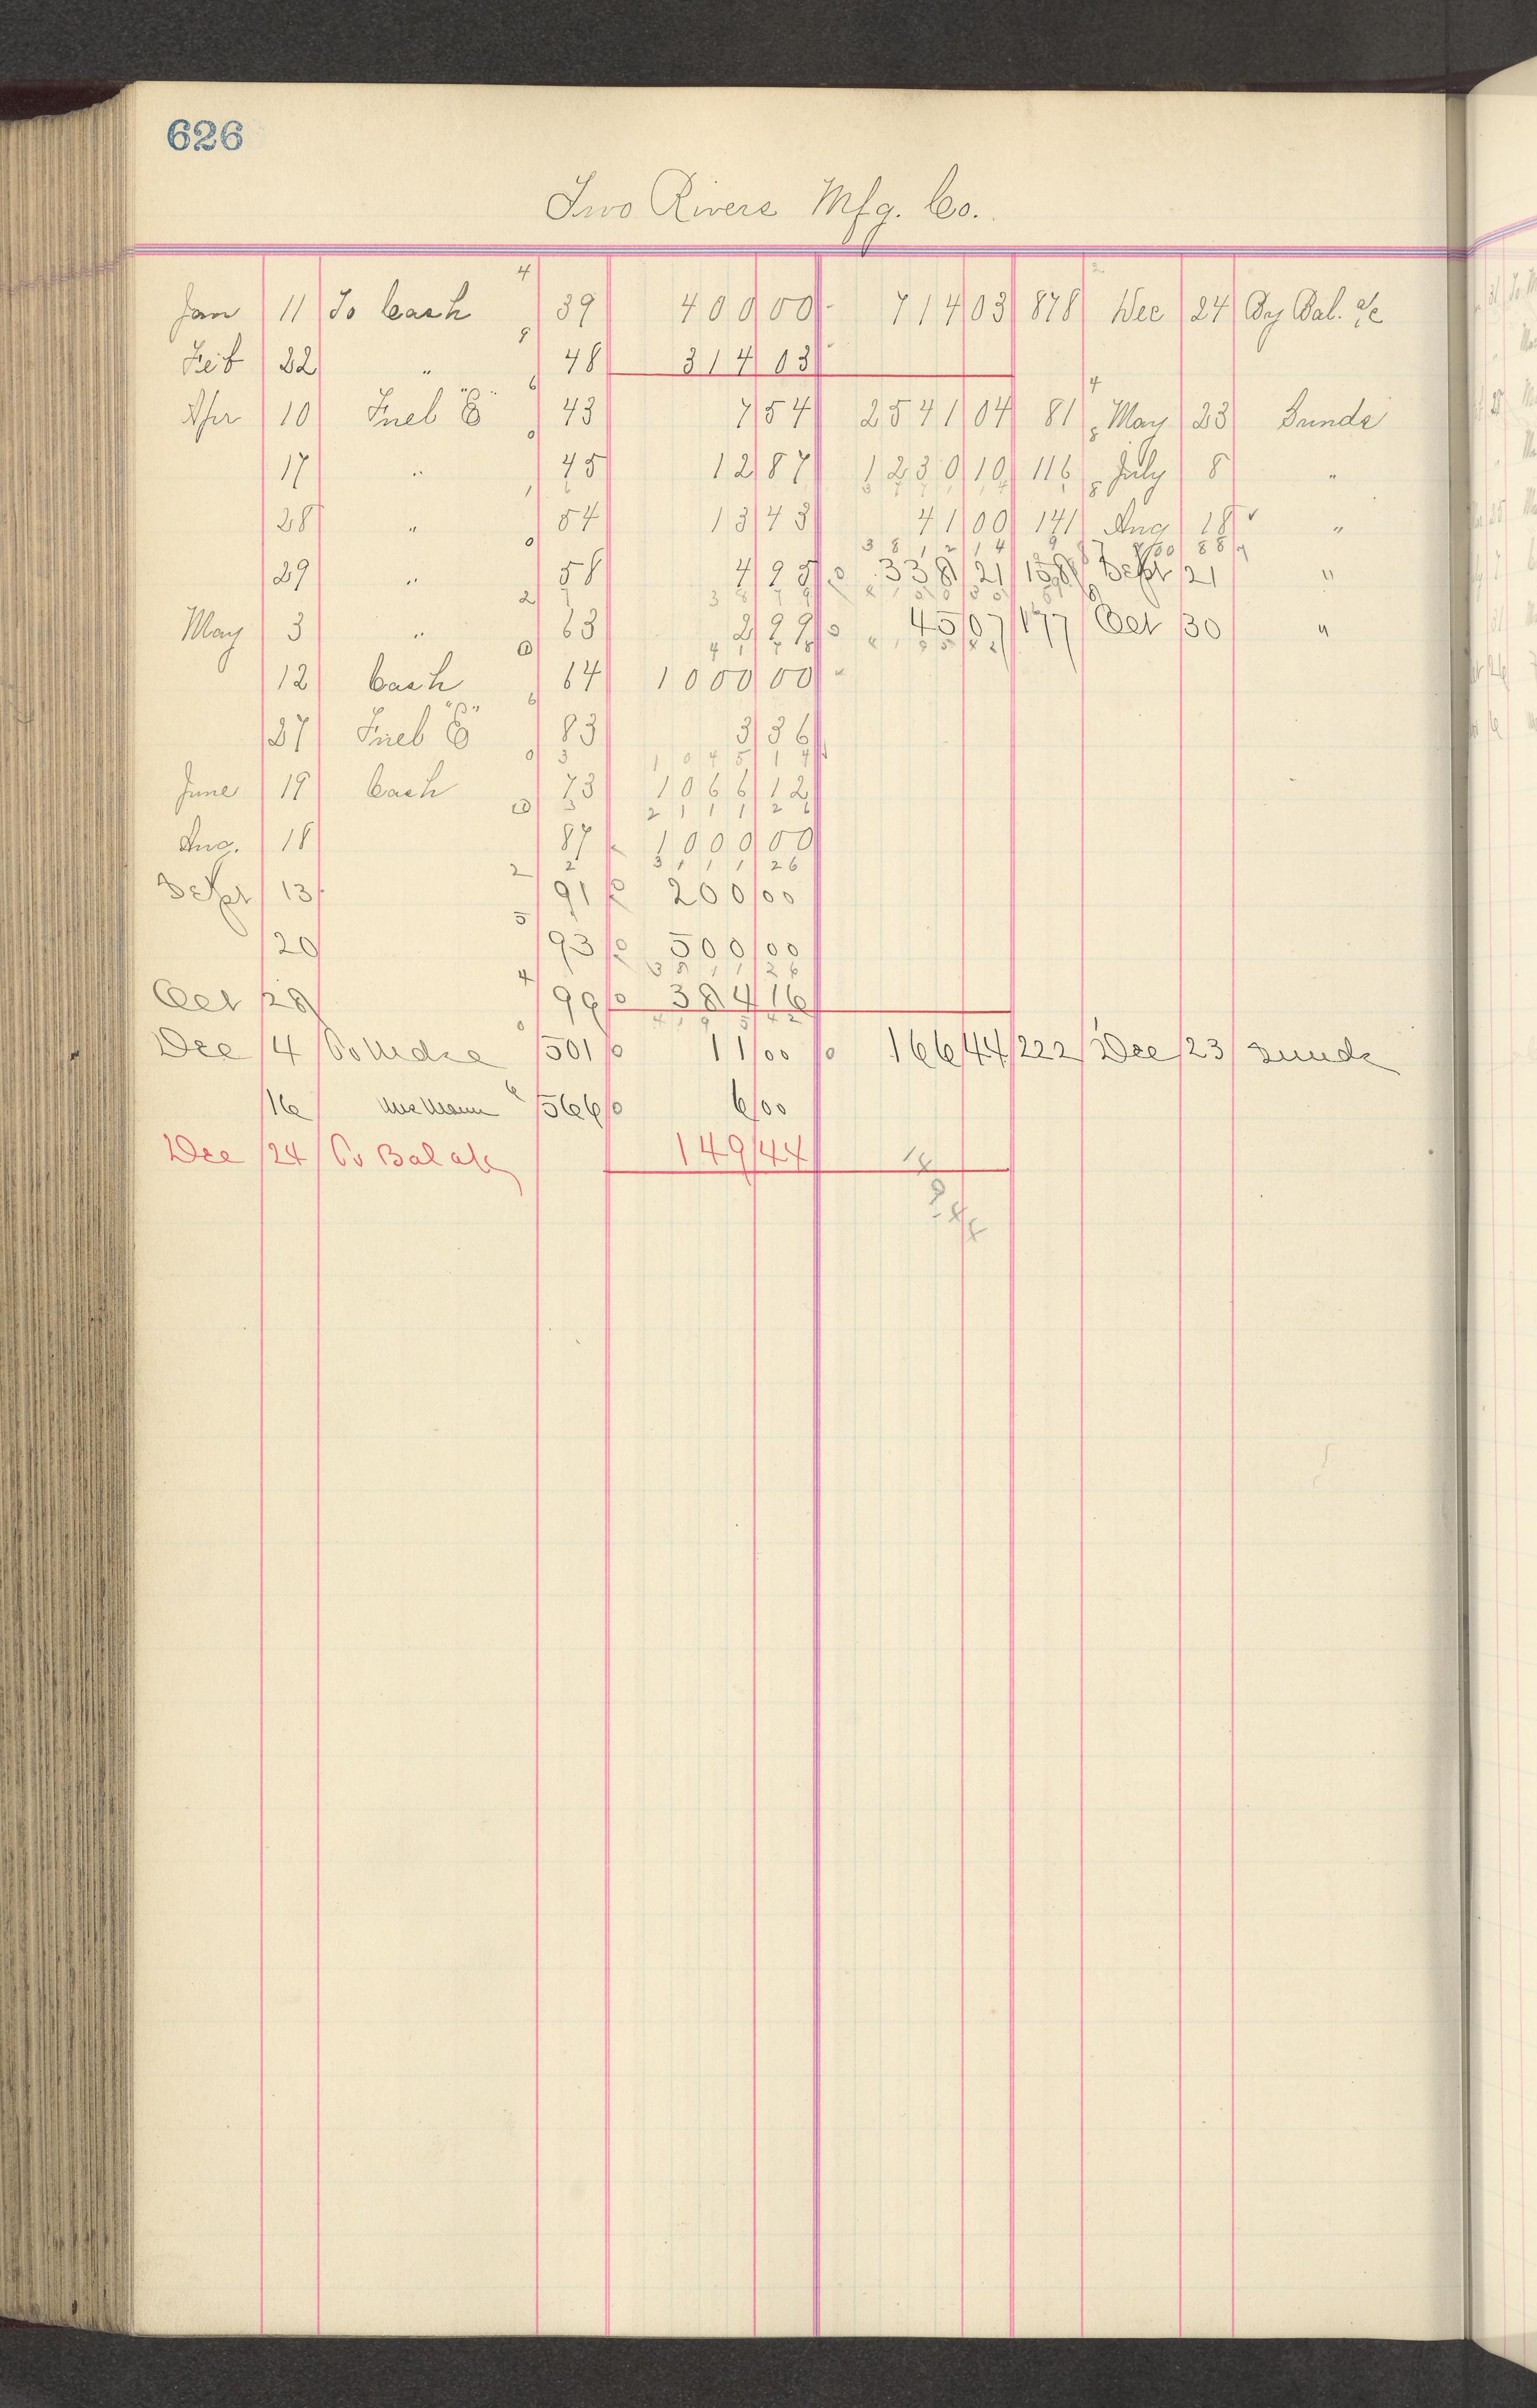 626
Two Rivers Mfg. Co.
Jan 11 To Cash 39 400 00 714 03 878 Dec 24 By Bal. a/c
Feb 22 " 48 314 03
Apr 10 Fuel "E" 43 7 54 2541 04 81 May 23 Sunds
17 " 45 12 87 1230 10 116 July 8 "
28 " 54 13 43 41 00 141 Aug 18 "
29 " 58 4 95 338 21 158 Sept 21 "
May 3 " 63 2 99 45 07 177 Oct 30 "
12 Cash 64 1000 00
27 Fuel "E" 83 3 36
June 19 Cash 73 1066 12
Aug. 18 87 1000 00
Sept 13 91 200 00
20 93 500 00
Oct 28 99 384 16
Dec 4 501 11 00 166 44 222 Dec 23 Sunds
16 566 6 00
Dec 24 To Bal a/c 149 44